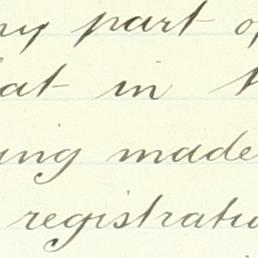 ny part of
at in
ing made
registratio